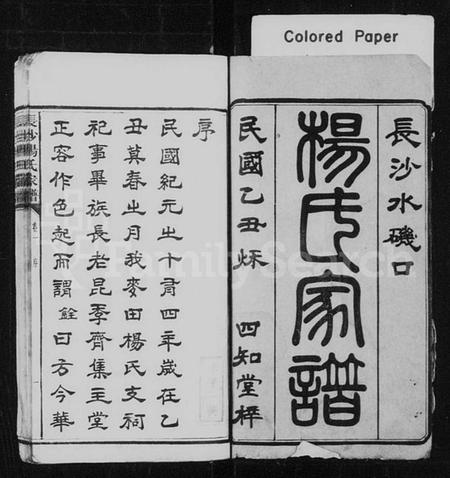 Colored Paper
長沙水磯口
楊氏家譜
民國乙丑秌 四知堂梓
序
民國紀元㞢十有四年歲在乙
丑莫春㞢月我麥田楊氏支祠
祀事畢族長老昆季齊集主堂
正容作色起而謂銓曰方今華
長沙楊氏家譜 卷一 序
FamilySearch